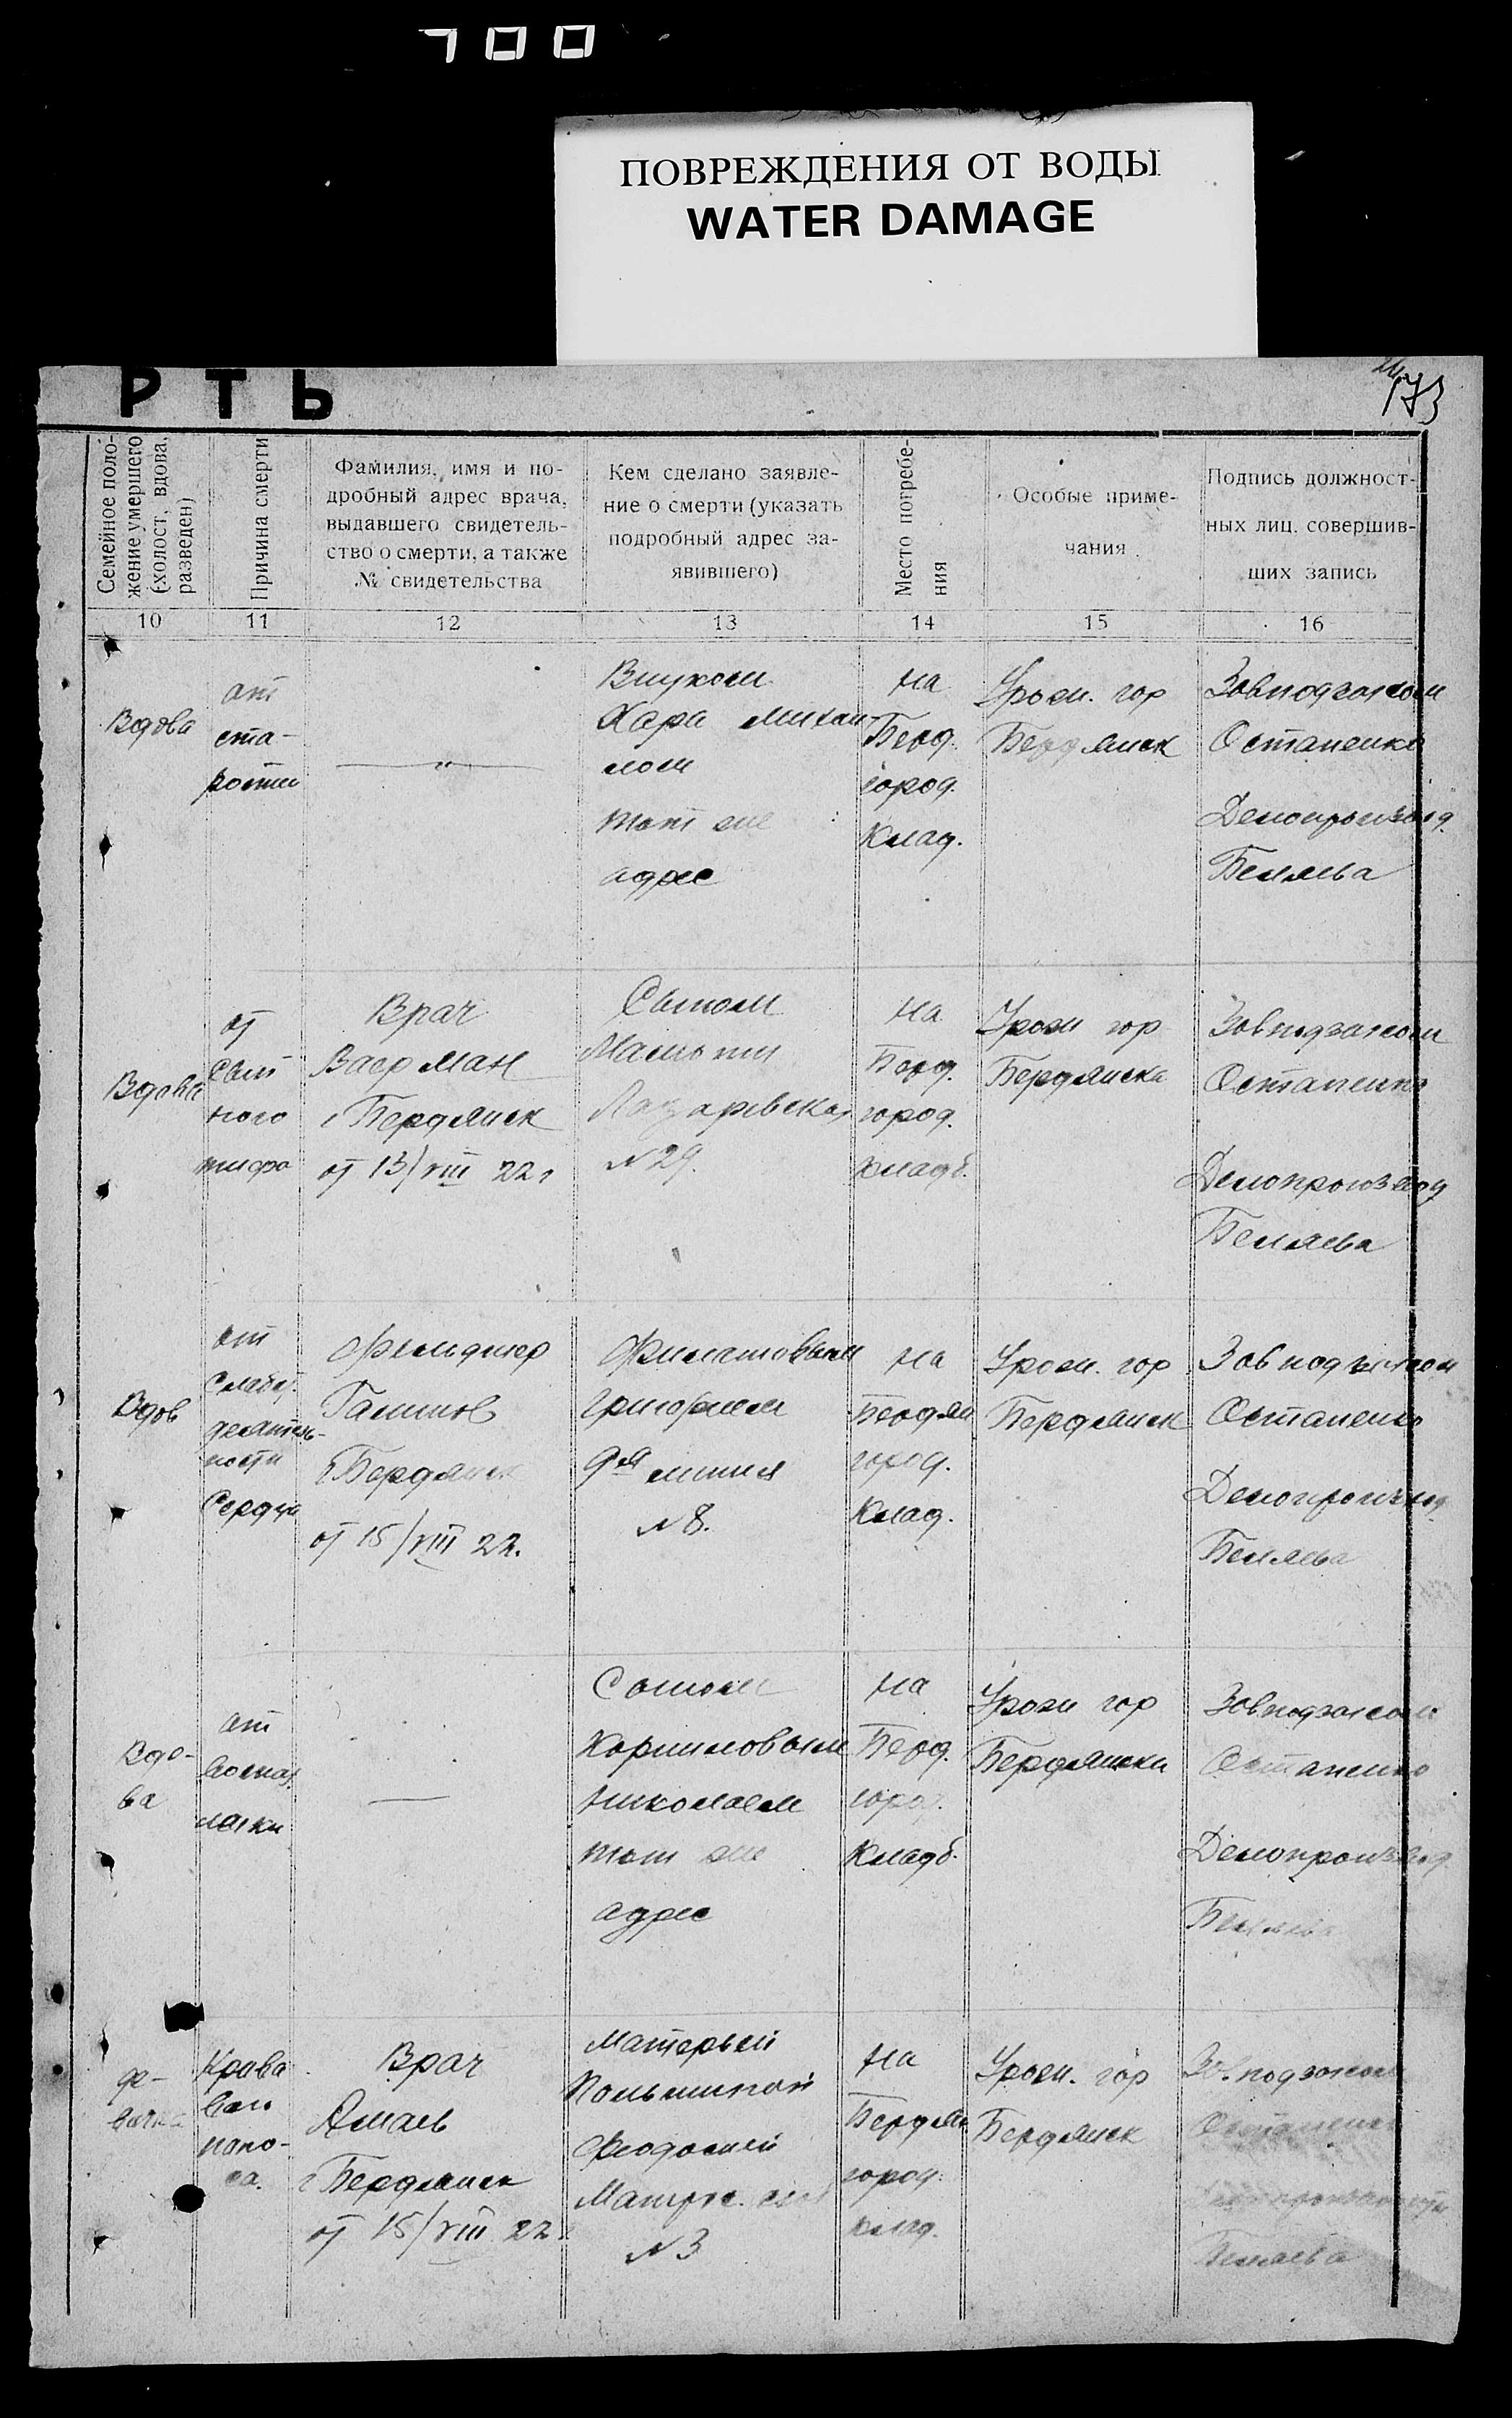 700
ПОВРЕЖДЕНИЯ ОТ ВОДЫ
WATER DAMAGE
РТЬ
173
Семейное поло-
жение умершего
(холост, вдова,
разведен)
Причина смерти
Фамилия, имя и по-
дробный адрес врача,
выдавшего свидетель-
ство о смерти, а также
№ свидетельства
Кем сделано заявле-
ние о смерти (указать
подробный адрес за-
явившего)
Место погребе-
ния
Особые приме-
чания
Подпись должност-
ных лиц, совершив-
ших запись
10
11
12
13
14
15
16
Вдова
от
ста-
рости
— " —
Внуком
тот же
адрес
на
Берд.
город.
Клад.
Урож. гор
Бердянск
Завподзагсом
Остапенко
Делопроизвод.
Беляева
Вдова
от
Сып
ного
тифа
Врач
Ваерман
г Бердянск
от 13/VIII 22 г
Сыном
Лазаревская
N 29.
на
Берд.
город.
кладб.
Урож гор
Бердянска
Завподзагсом
Остапенко
Делопроизвод
Беляева
Вдов
от
слабо.
деятель-
ности
Сердца
Фельдшер
г Бердянск
от 15/VIII 22.
Филатовым
Григорием
9ая линия
N 8.
на
Бердян
город.
Клад.
Урож. гор
Бердянск
Завподзагсом
Остапенко
Делопроизвод
Беляева
Вдо-
ва
от
—
Сыном
Корниловым
Николаем
тот же
адрес
на
Берд.
город.
Кладб.
Урож гор
Бердянска
Завподзагсом
Остапенко
Делопроизвод
Беляева
де-
вочка
Крова
ваго
поно-
са.
Врач
г Бердянск
от 15/VIII 22
Матерью
Феодосией
N 3
на
Бердян
город.
клад.
Урож. гор
Бердянск
Завподзагсом
Остапенко
Беляева